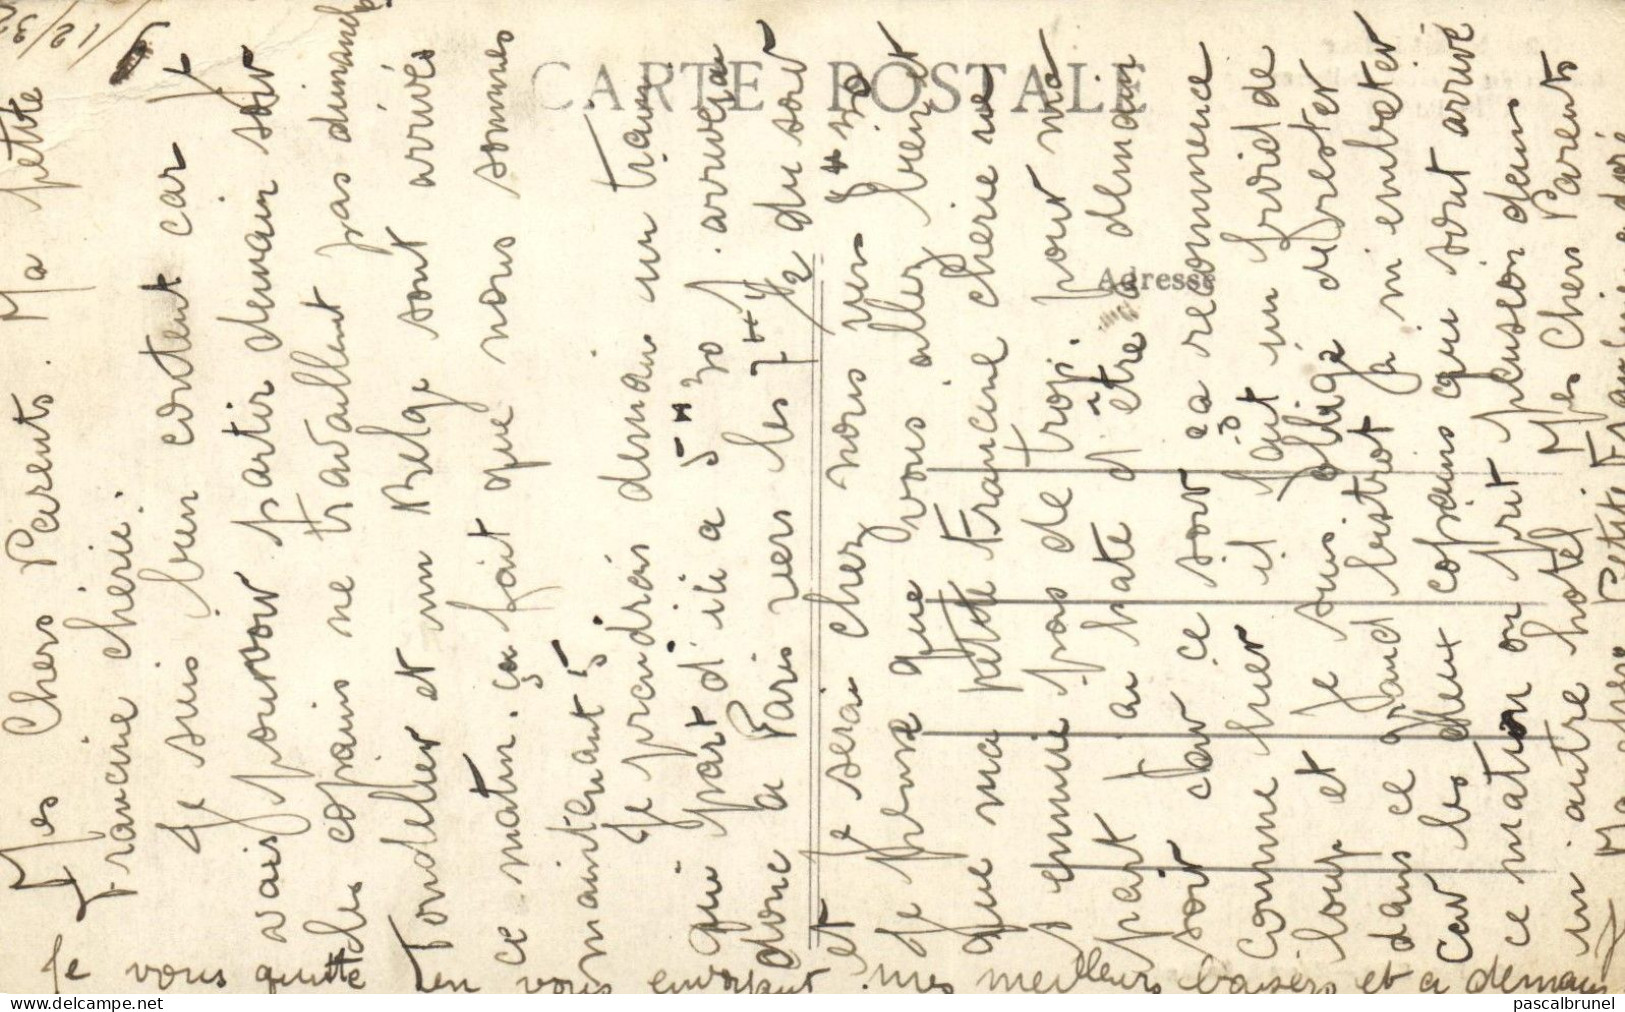 CARTE POSTALE
Adresse
Mes Chers Parents. Ma petite
Francine chérie.
Je suis bien content car je
vais pouvoir partir demain soir
les copains ne travaillent pas dimanche
Tondelier et un Belge sont arrivés
ce matin. ça fait que nous sommes
maintenant 5.
Je prendrai demain un train
qui part d'ici a 5H30 j. arriverai
donc a Paris vers les 7H 1/2 du soir
et je serai chez nous vers 8H30
Je pense que vous allez bien et
que ma petite Francine chérie ne
s'ennuie pas de trop. pour ma
part j'ai hate d'être a demain
soir car ce soir ça recommence
comme hier il fait un froid de
loup et je suis obligé de rester
dans ce grand bistrot ça m'embeter
car les deux copains qui sont arrivé
ce matin on prit pension dans
un autre hotel. Mes Chers Parents
Ma chere Petite
Je vous quitte en vous envoyant mes meilleurs baisers et a demain
www.delcampe.net
pascalbrunel